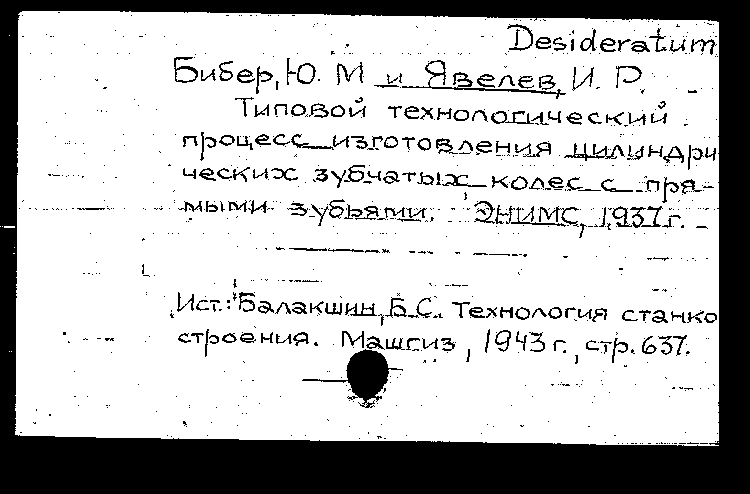 Desideratum
Бибер, Ю. М и Явелев, И. Р.
Типовой технологический
процесс изготовления цилиндри
ческих зубчатых колес с пря-
мыми зубьями. ЭНИМС, 1937 г.
Ист.: Балакшин, Б.С. Технология станко
строения. Машгиз, 1943 г., стр. 637.